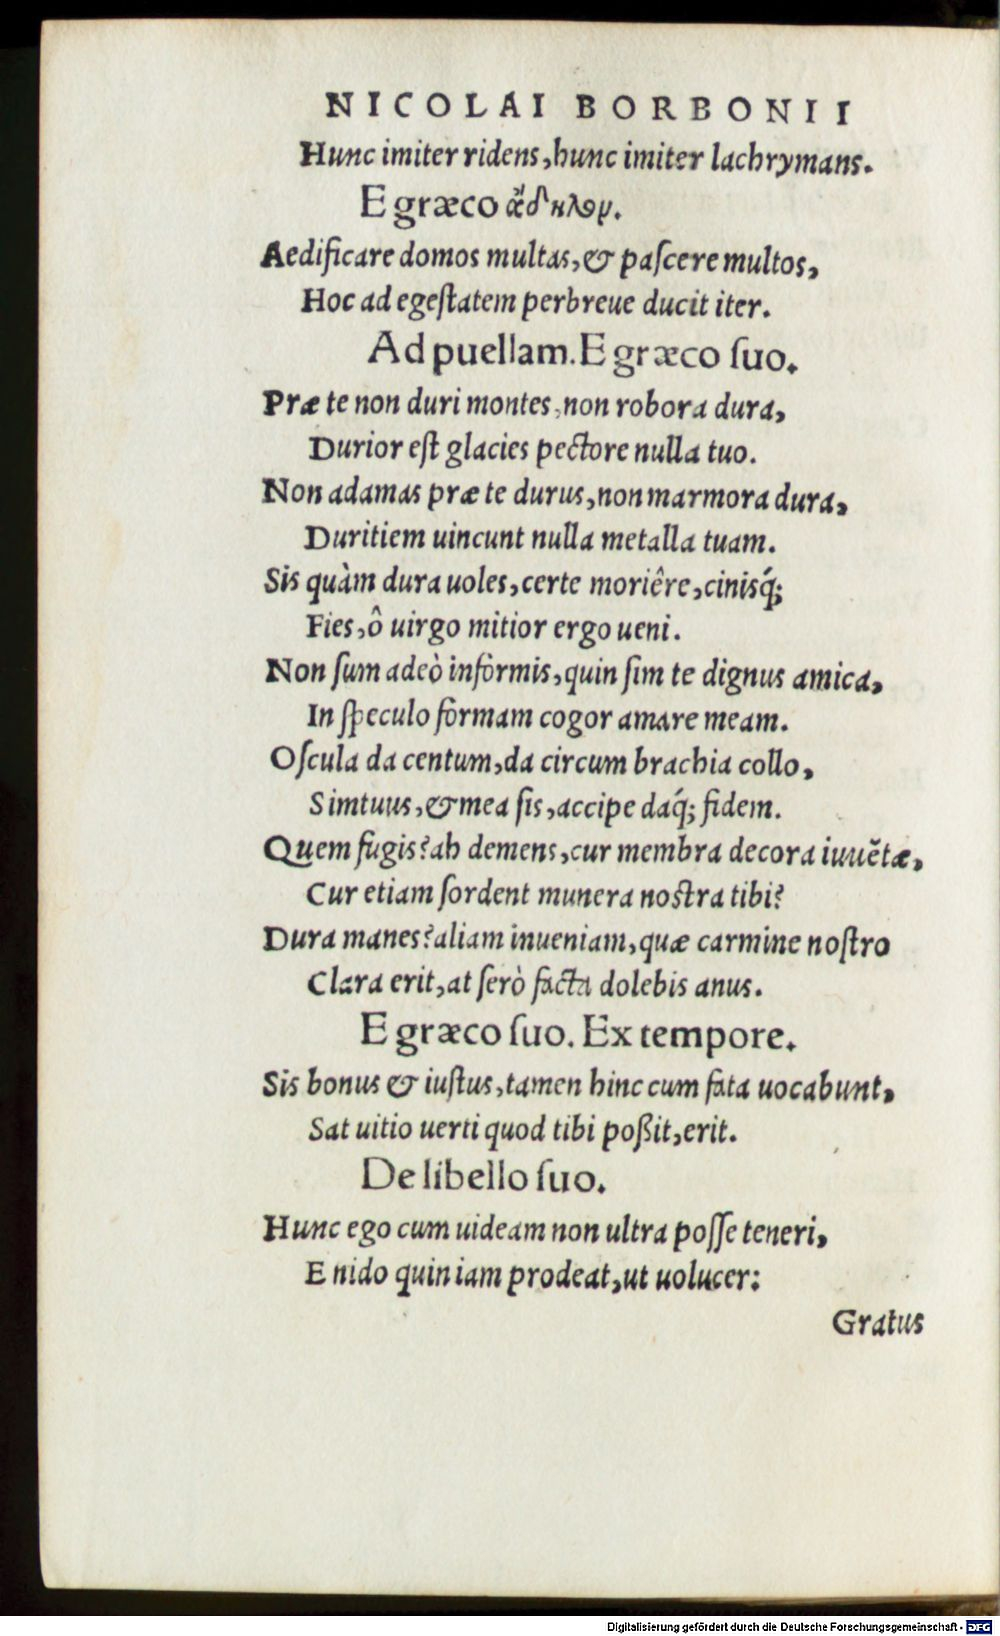 NICOLAI BORBONII
Hunc imiter ridens, hunc imiter lachrymans.
E græco ἄδηλον.
Aedificare domos multas, & paſcere multos,
Hoc ad egeſtatem perbreue ducit iter.
Ad puellam. E græco ſuo.
Præ te non duri montes, non robora dura,
Durior eſt glacies pectore nulla tuo.
Non adamas præ te durus, non marmora dura,
Duritiem uincunt nulla metalla tuam.
Sis quàm dura uoles, certe moriêre, cinisq́;
Fies, ô uirgo mitior ergo ueni.
Non ſum adeò informis, quin ſim te dignus amica,
In ſpeculo formam cogor amare meam.
Oſcula da centum, da circum brachia collo,
Sim tuus, & mea ſis, accipe daq́; fidem.
Quem fugis? ah demens, cur membra decora iuuẽtæ,
Cur etiam ſordent munera noſtra tibi?
Dura manes? aliam inueniam, quæ carmine noſtro
Clara erit, at ſerò facta dolebis anus.
E græco ſuo. Ex tempore.
Sis bonus & iuſtus, tamen hinc cum fata uocabunt,
Sat uitio uerti quod tibi poßit, erit.
De libello ſuo.
Hunc ego cum uideam non ultra poſſe teneri,
E nido quin iam prodeat, ut uolucer:
Gratus
Digitalisierung gefördert durch die Deutsche Forschungsgemeinschaft - DFG